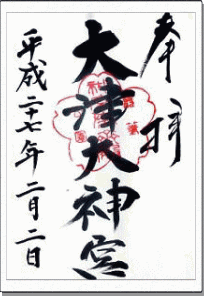 奉拝
大津大神宮
平成二十七年二月二日